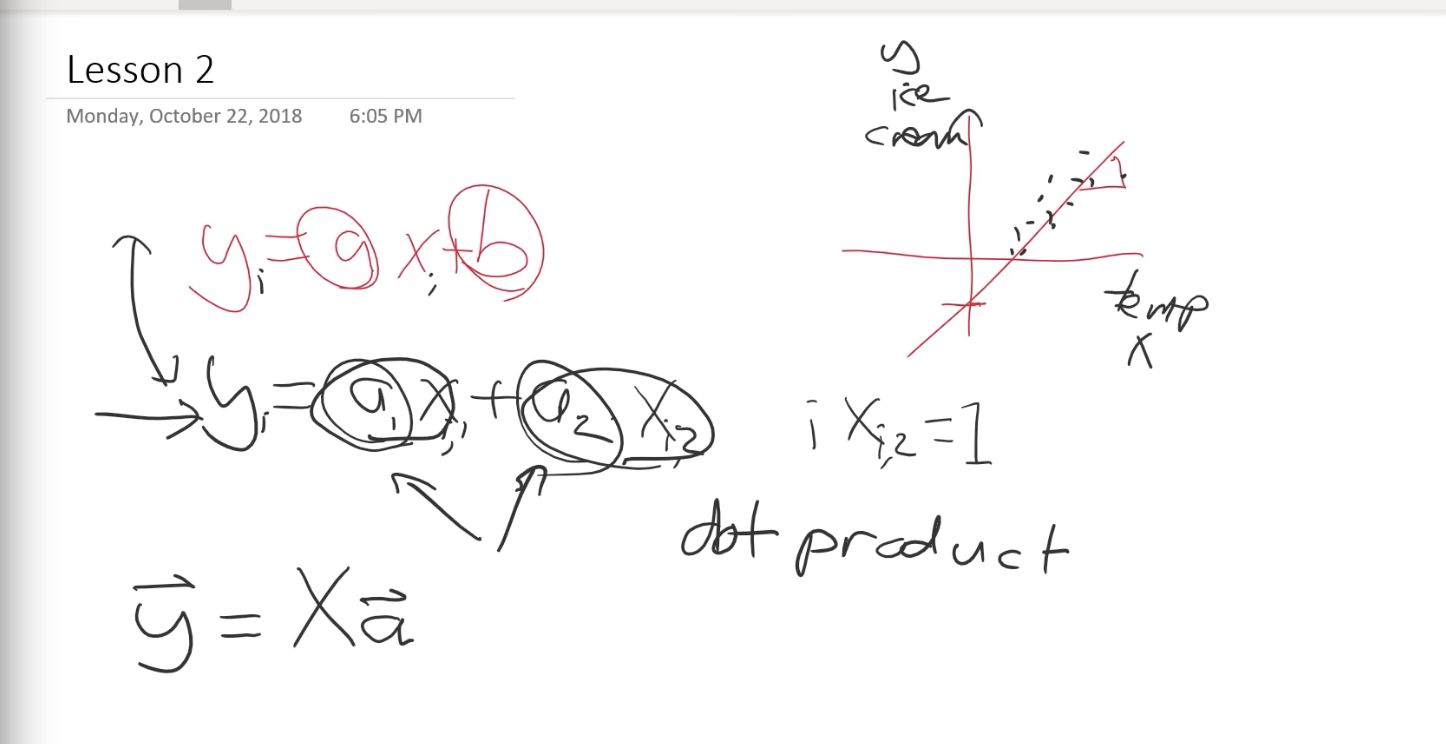 Lesson 2
Monday, October 22, 2018 6:05 PM
y
ice
cream
temp
x
yᵢ = a xᵢ + b
yᵢ = a₁ xᵢ,₁ + a₂ xᵢ,₂
i xᵢ,₂ = 1
dot product
y⃗ = X a⃗